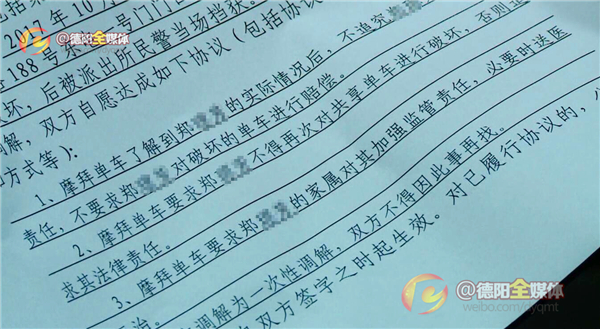 @德阳全媒体
2017 年 10 月
188 号
坏，后被派出所民警当场挡获。
解，双方自愿达成如下协议（包括协议
方式等）：
1、摩拜单车了解到郑 的实际情况后，不追究
责任，不要求郑 对破坏的单车进行赔偿。
2、摩拜单车要求郑 不得再次对共享单车进行破坏，否则追
求其法律责任。
3、摩拜单车要求郑 的家属对其加强监管责任，必要时送医
治。
调解为一次性调解，双方不得因此事再找。
双方签字之时起生效。对已履行协议的，
@德阳全媒体